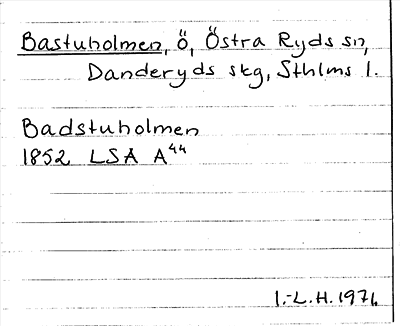 Bastuholmen, ö, Östra Ryds sn,
Danderyds skg, Sthlms l.
Badstuholmen
1852 LSA A44
I.-L.H. 1971.